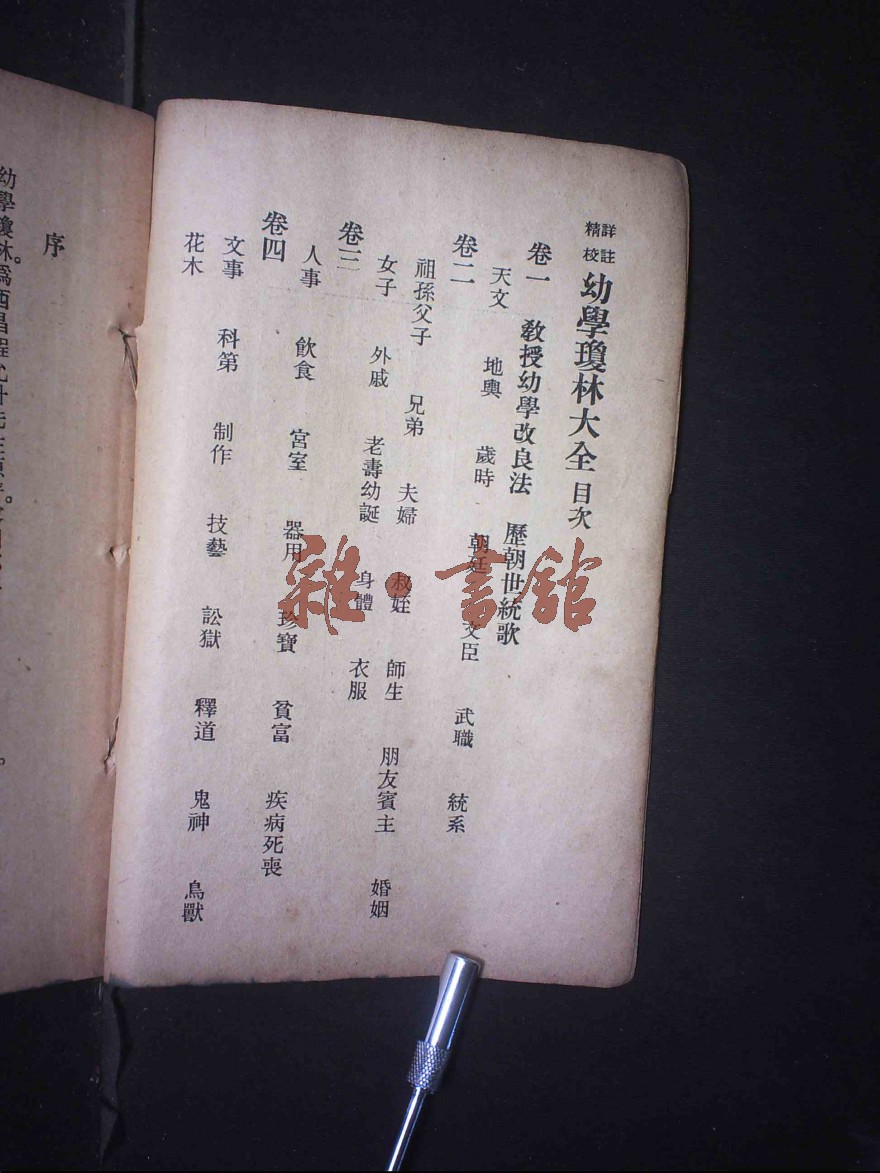 詳註
精校
幼學瓊林大全目次
卷一 教授幼學改良法 歷朝世統歌
天文 地輿 歲時 朝廷 文臣 武職 統系
卷二
祖孫父子 兄弟 夫婦 叔姪 師生 朋友賓主 婚姻
女子 外戚 老壽幼誕 身體 衣服
卷三
人事 飲食 宮室 器用 珍寶 貧富 疾病死喪
卷四
文事 科第 制作 技藝 訟獄 釋道 鬼神 鳥獸
花木
序
幼學瓊林。爲西昌程允升先生
雜·書館